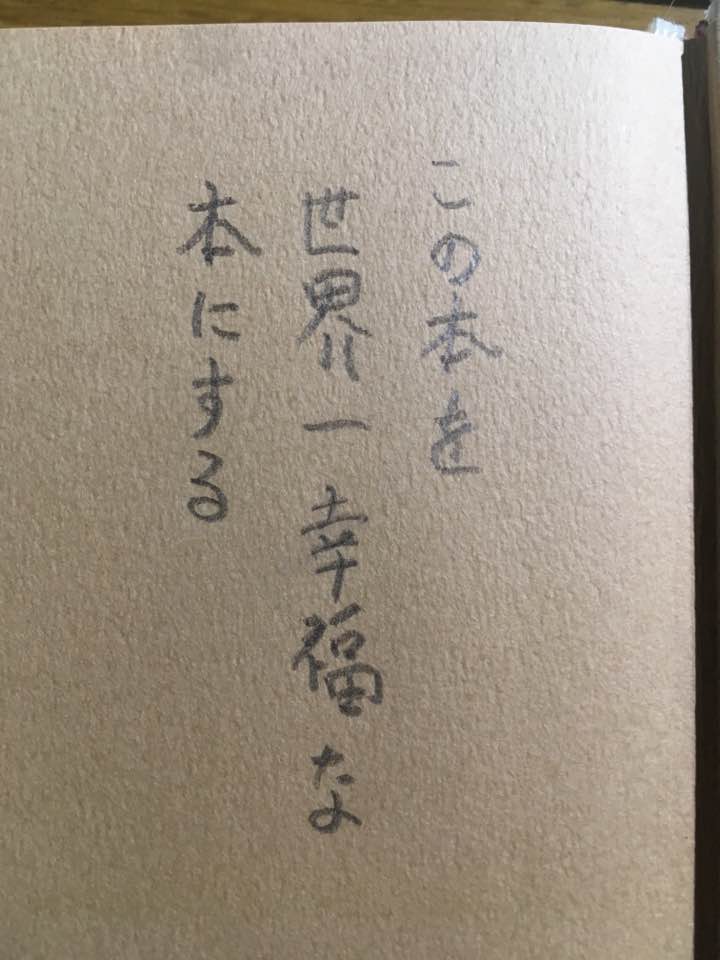 この本を
世界一幸福な
本にする